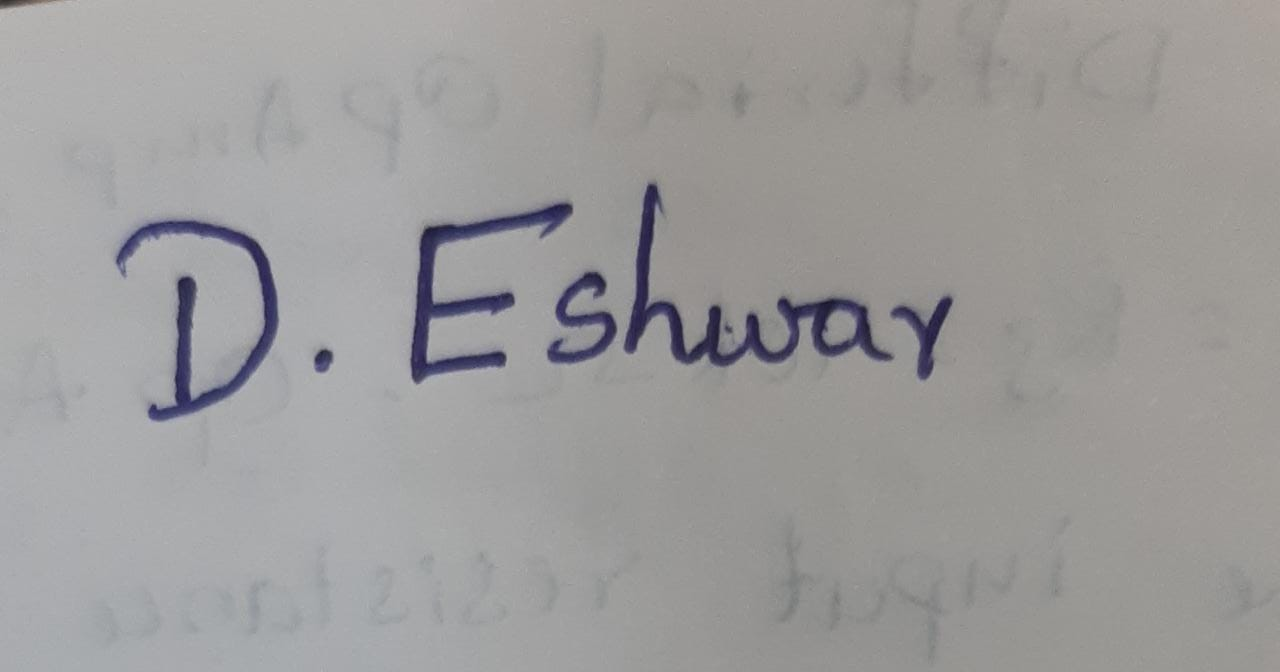 D. Eshwar